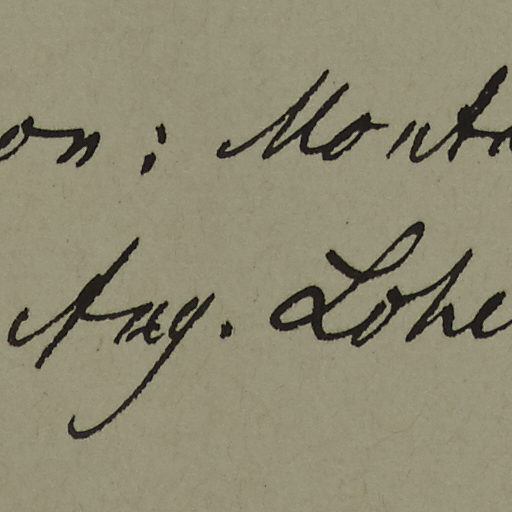 on: Monta
Aug. Lohe